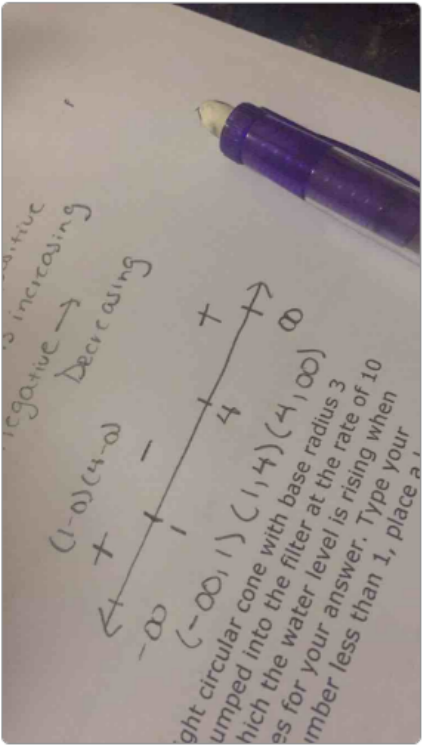 is increasing
negative →
Decreasing
(1-0)(4-0)
+ - +
-∞ 1 4 ∞
(-∞,1) (1,4) (4,∞)
ght circular cone with base radius 3
umped into the filter at the rate of 10
hich the water level is rising when
es for your answer. Type your
mber less than 1, place a